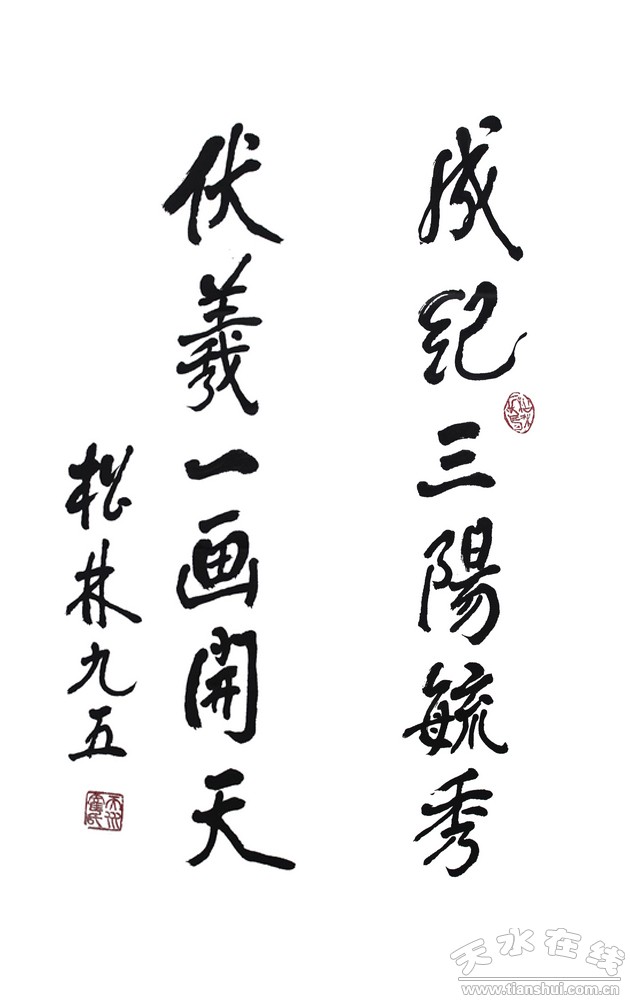 成紀三陽毓秀
伏羲一画開天
松林九五
天水在线
www.tianshui.com.cn